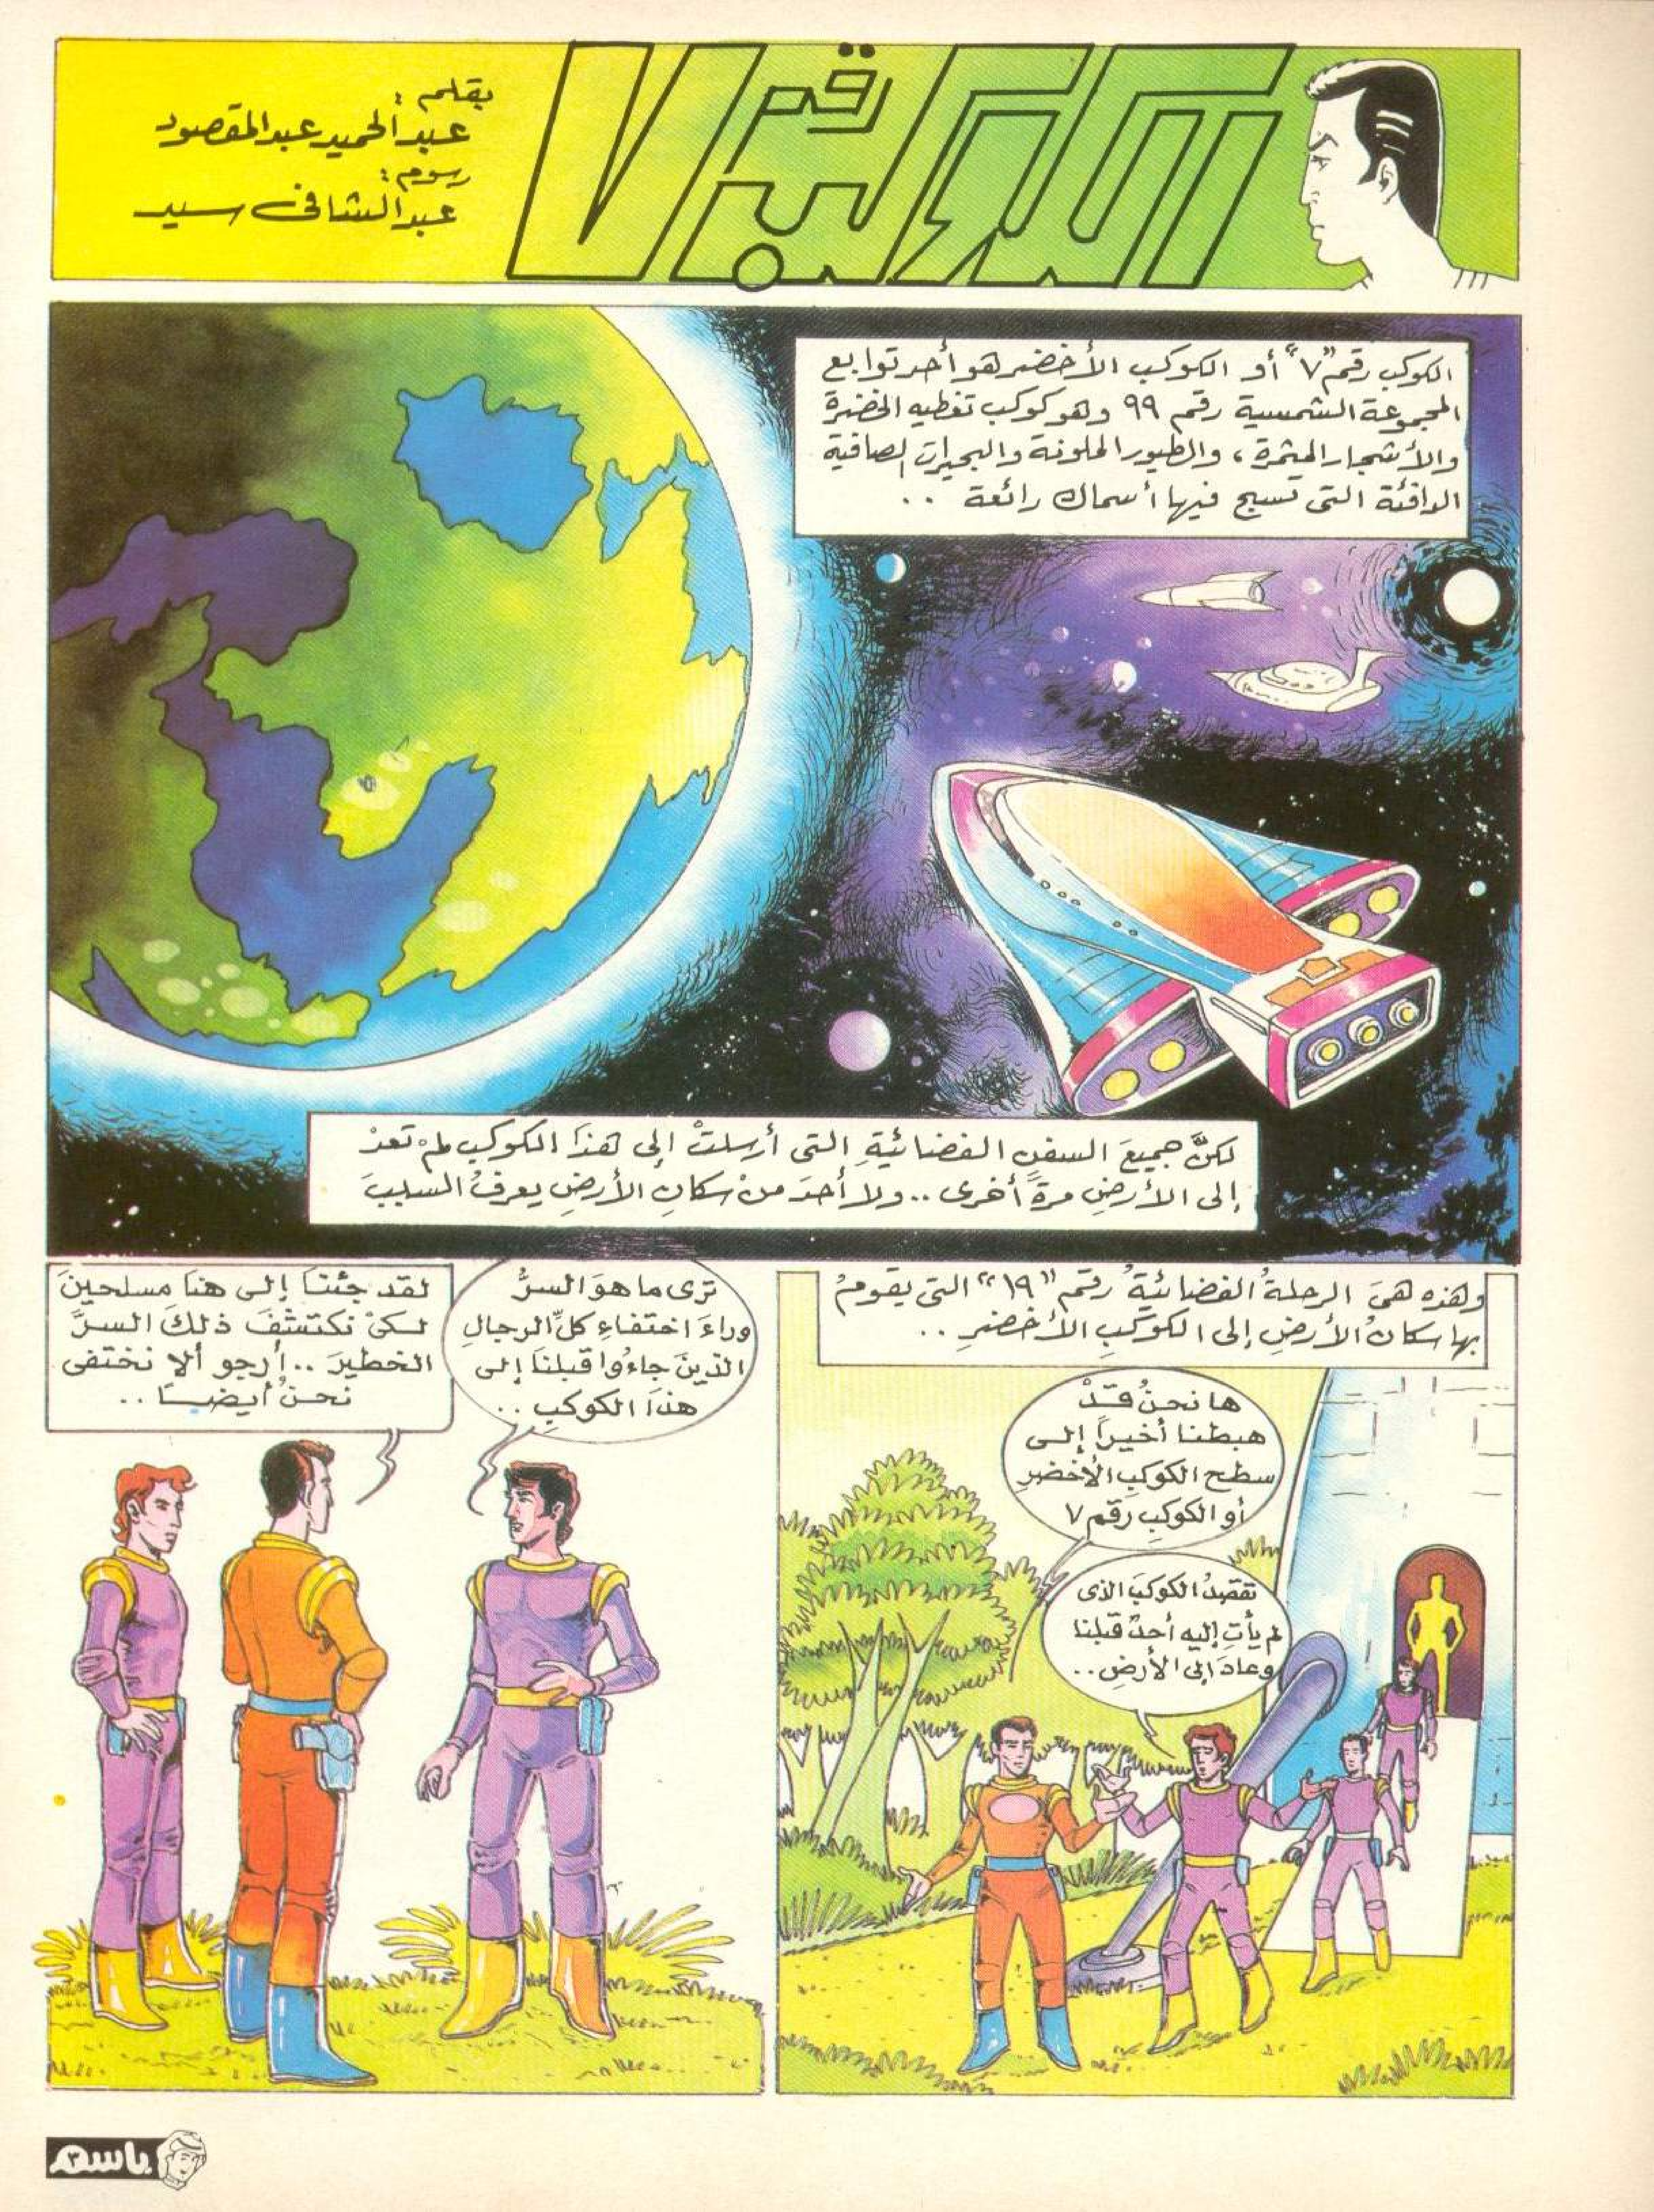 الكوكب رقم ٧
بقلم :
عبد الحميد عبد المقصود
رسوم :
عبد الشافى سيد
الكوكب رقم "٧" أو الكوكب الأخضر هو أحد توابع
المجموعة الشمسية رقم ٩٩ وهو كوكب تغطيه الخضرة
والأشجار المثمرة ، والطيور الملونة والبحيرات الصافية
الدافئة التى تسبح فيها أسماك رائعة ..
لكنَّ جميعَ السفنِ الفضائيةِ التى أرسلتْ إلى هذَا الكوكبِ لمْ تعدْ
إلى الأرضِ مرةً أخرى .. ولا أحدَ منْ سكانِ الأرضِ يعرفُ السببَ
وهذه هىَ الرحلةُ الفضائيةُ رقم "١٩" التى يقومُ
بها سكانُ الأرضِ إلى الكوكبِ الأخضرِ ..
ها نحنُ قدْ
هبطنا أخيراً إلى
سطحِ الكوكبِ الأخضرِ
أو الكوكبِ رقم ٧
تقصدُ الكوكبَ الذى
لم يأتِ إليه أحدٌ قبلنا
وعادَ إلى الأرضِ ..
ترى ما هوَ السرُّ
وراءَ اختفاءِ كلِّ الرجالِ
الذينَ جاءُوا قبلنَا إلى
هذَا الكوكبِ ..
لقد جئنَا إلى هنَا مسلحينَ
لكىْ نكتشفَ ذلكَ السرَّ
الخطيرَ .. أرجو ألا نختفى
نحنُ أيضـًا ..
باسم